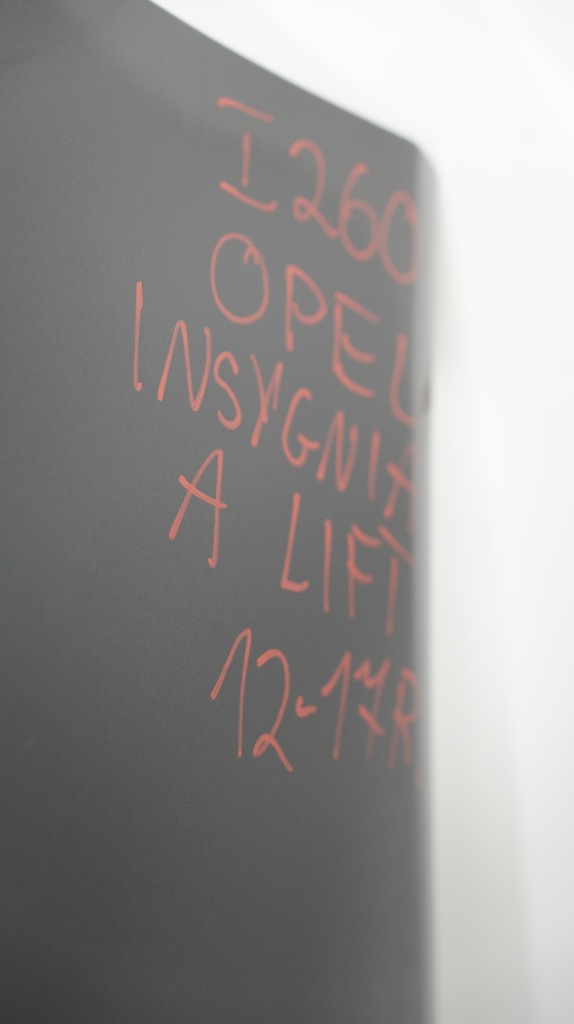 I260
OPEL
INSYGNIA
A LIFT
12-17R